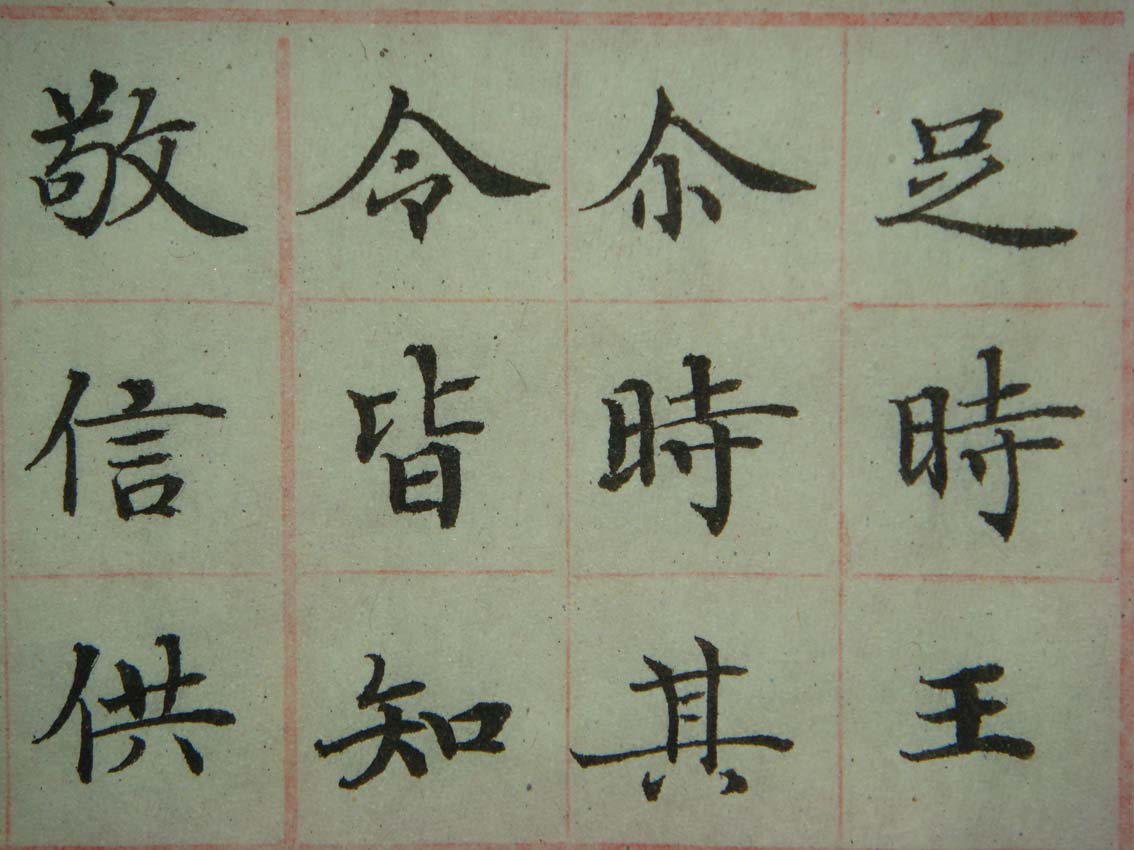 足時王
尒時其
令皆知
敬信供